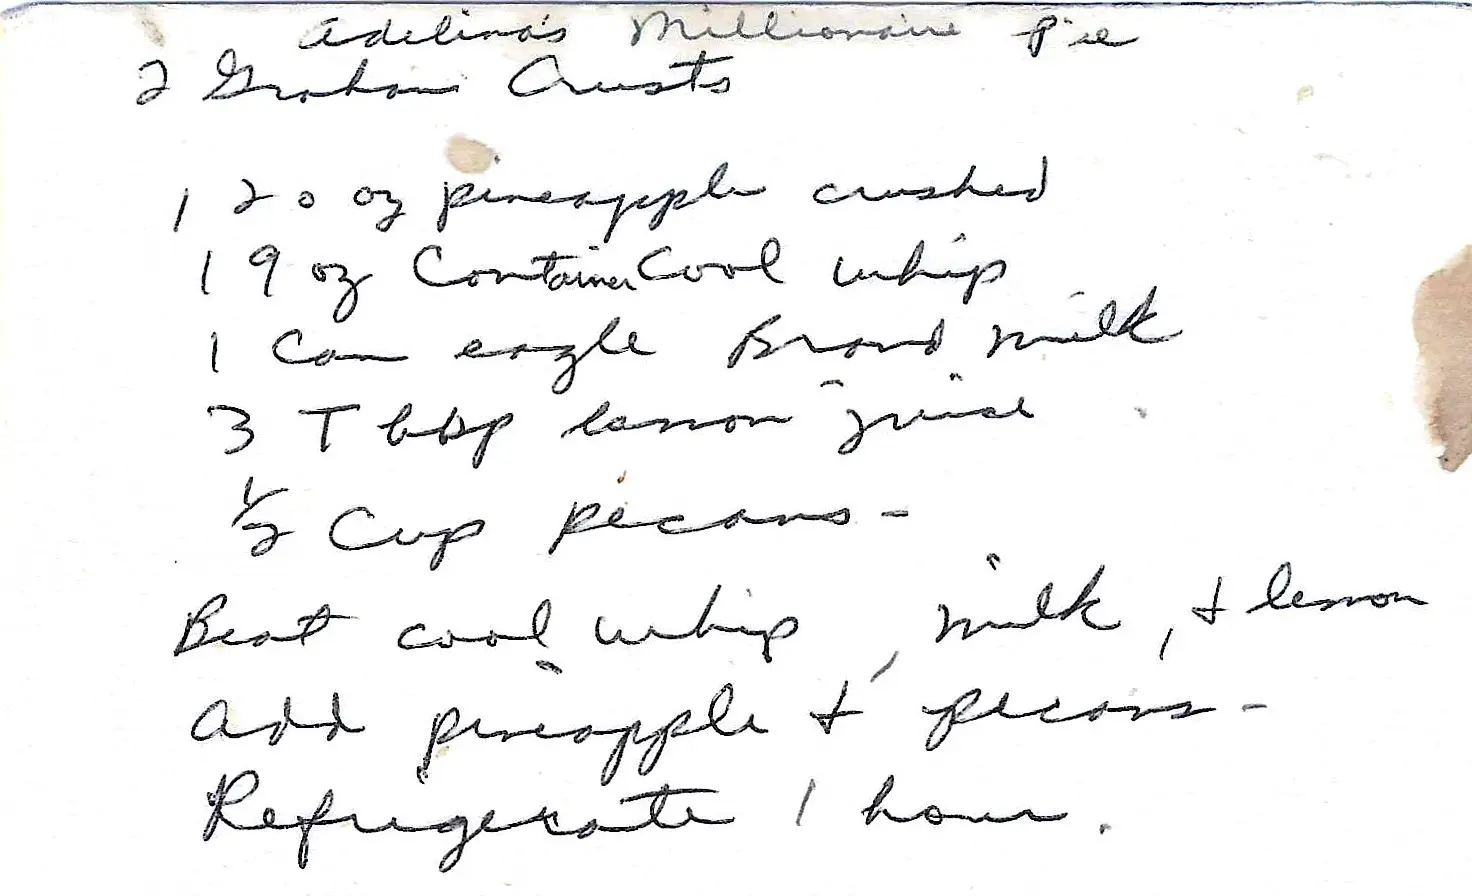 Adelina's Millionaire Pie
2 Graham Crusts
1 20 oz pineapple crushed
1 9 oz Container Cool whip
1 Can eagle Brand milk
3 Tbbsp lemon juice
1/2 Cup pecans -
Beat cool whip, milk, + lemon
add pineapple + pecans -
Refrigerate 1 hour.